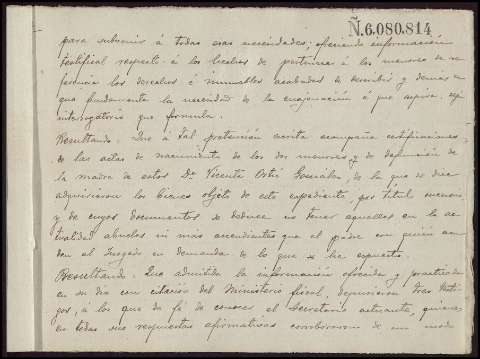 Ñ.6.080.814
para subvenir á todas esas necesidades; ofreciendo información
testifical respecto á los hechos de pertenecer á los menores de re
ferencia los derechos é inmuebles acabados de describir y demás en
que fundamenta la necesidad de la enajenación á que aspira,
interrogatorio que formula.
Resultando. Que á tal pretensión escrita acompaña certificaciones
de las actas de nacimiento de los dos menores y de defunción de
la madre de estos Dª Vicenta Ortí González, de la que se dice
adquirieron los bienes objeto de este expediente, por título
y de cuyos documentos se deduce no tener aquellos en la ac
tualidad abuelos ni más ascendientes que el padre con quien acu
den al Juzgado en demanda de lo que se ha expuesto.
Resultando. Que admitida la información ofrecida y practicada
en su día con citación del Ministerio fiscal, depusieron tres testi
gos, á los que da fé de conocer el Secretario actuante, quienes,
en todas sus respuestas afirmativas corroboraron de un modo